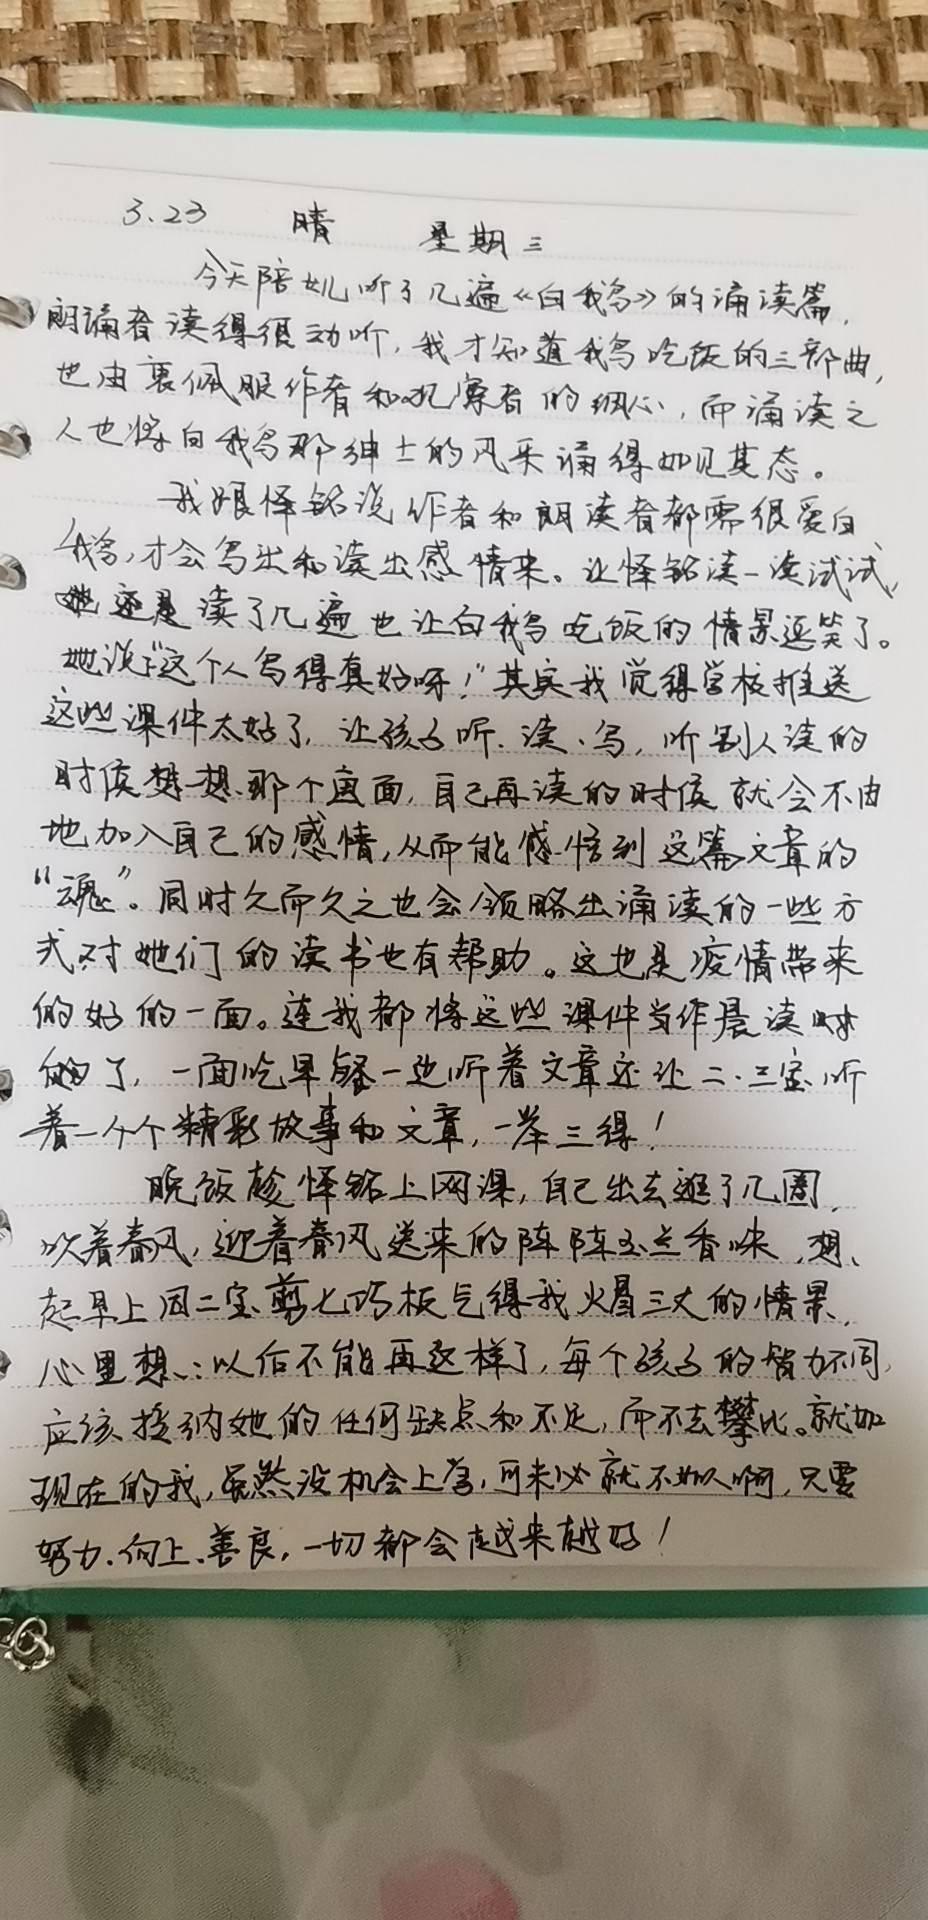 3.23 晴 星期三
今天陪女儿听了几遍《白鹅》的诵读篇,
朗诵者读得很动听,我才知道鹅吃饭的三部曲,
也由衷佩服作者和观察者的细心,而诵读之
人也将白鹅那绅士的风采诵得如见其态。
我跟怿铭说作者和朗读者都需很爱白
鹅,才会写出和读出感情来。让怿铭读一读试试,
她还是读了几遍也让白鹅吃饭的情景逗笑了。
她说:"这个人写得真好呀!"其实我觉得学校推送
这些课件太好了,让孩子听、读、写,听别人读的
时候想一想那个画面,自己再读的时候就会不由
地加入自己的感情,从而能感悟到这篇文章的
“魂”。同时久而久之也会领略出诵读的一些方
式对她们的读书也有帮助。这也是疫情带来
的好的一面。连我都将这些课件当作晨读时
了,一面吃早餐一边听着文章还让二、三宝听
着一个个精彩故事和文章,一举三得!
晚饭趁怿铭上网课,自己出去逛了几圈,
吹着春风,迎着春风送来的阵阵玉兰香味,想
起早上因二宝剪七巧板气得我火冒三丈的情景,
心里想:以后不能再这样了,每个孩子的智力不同,
应该接纳她的任何缺点和不足,而不去攀比。就如
现在的我,虽然没机会上学,可未必就不如人啊,只要
努力、向上、善良,一切都会越来越好!